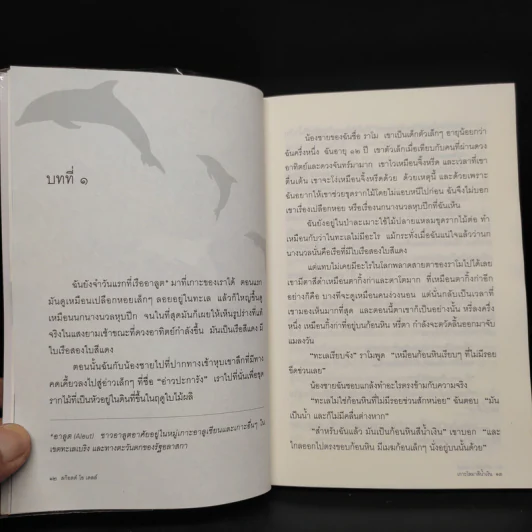 บทที่ ๑
ฉันยังจำวันแรกที่เรืออาลูต* มาที่เกาะของเราได้ ตอนแรก
มันดูเหมือนเปลือกหอยเล็กๆ ลอยอยู่ในทะเล แล้วก็ใหญ่ขึ้น
เหมือนนกนางนวลหุบปีก จนในที่สุดมันก็เผยให้เห็นรูปร่างที่แท้
จริงในแสงยามเช้าขณะที่ดวงอาทิตย์กำลังขึ้น มันเป็นเรือสีแดง มี
ใบเรือสองใบสีแดง
ตอนนั้นฉันกับน้องชายไปที่ปากทางเข้าหุบเขาลึกที่มีทาง
คดเคี้ยวลงไปสู่อ่าวเล็กๆ ที่ชื่อ "อ่าวปะการัง" เราไปที่นั่นเพื่อขุด
รากไม้ที่เป็นหัวอยู่ในดินที่ขึ้นในฤดูใบไม้ผลิ
*อาลูต (Aleut) ชาวอาลูตอาศัยอยู่ในหมู่เกาะอาลูเชียนและเกาะอื่นๆ ใน
เขตทะเลเบริง และทางตะวันตกของรัฐอลาสกา
๑๒ สก๊อตต์ โอ เดลล์
น้องชายของฉันชื่อ ราโม เขาเป็นเด็กตัวเล็กๆ อายุน้อยกว่า
ฉันครึ่งหนึ่ง ฉันอายุ ๑๒ ปี เขาตัวเล็กเมื่อเทียบกับคนที่ผ่านดวง
อาทิตย์และดวงจันทร์มามาก เขาไวเหมือนจิ้งหรีด และเวลาที่เขา
ตื่นเต้น เขาจะโง่เหมือนจิ้งหรีดด้วย ด้วยเหตุนี้ และด้วยเพราะ
ฉันอยากให้เขาช่วยขุดรากไม้โดยไม่แอบหนีไปก่อน ฉันจึงไม่บอก
เขาเรื่องเปลือกหอย หรือเรื่องนกนางนวลหุบปีกที่ฉันเห็น
ฉันยังอยู่ในป่าละเมาะใช้ไม้ปลายแหลมขุดรากไม้ต่อ ทำ
เหมือนกับว่าในทะเลไม่มีอะไร แม้กระทั่งเมื่อฉันแน่ใจแล้วว่านก
นางนวลนั่นคือเรือที่มีใบเรือสองใบสีแดง
แต่แทบไม่เคยมีอะไรในโลกพลาดสายตาของราโมไปได้เลย
เขามีตาสีดำเหมือนตากิ้งก่าและตาโตมาก ที่เหมือนตากิ้งก่าอีก
อย่างก็คือ บางทีจะดูเหมือนคนง่วงนอน แต่นั่นกลับเป็นเวลาที่
เขามองเห็นมากที่สุด และตอนนี้ตาเขาก็เป็นอย่างนั้น หรี่ลงครึ่ง
หนึ่ง เหมือนกิ้งก่าที่อยู่บนก้อนหิน หรี่ตา กำลังจะตวัดลิ้นออกมาจับ
แมลงวัน
"ทะเลเรียบจัง" ราโมพูด "เหมือนก้อนหินเรียบๆ ที่ไม่มีรอย
ขีดข่วนเลย"
น้องชายฉันชอบแกล้งทำอะไรตรงข้ามกับความจริง
"ทะเลไม่ใช่ก้อนหินที่ไม่มีรอยข่วนสักหน่อย" ฉันตอบ "มัน
เป็นน้ำ และก็ไม่มีคลื่นต่างหาก"
"สำหรับฉันแล้ว มันเป็นก้อนหินสีน้ำเงิน" เขาบอก "และ
ไกลออกไปตรงขอบก้อนหิน มีเมฆก้อนเล็กๆ นั่งอยู่บนนั้นด้วย"
เกาะโลมาสีน้ำเงิน ๑๓